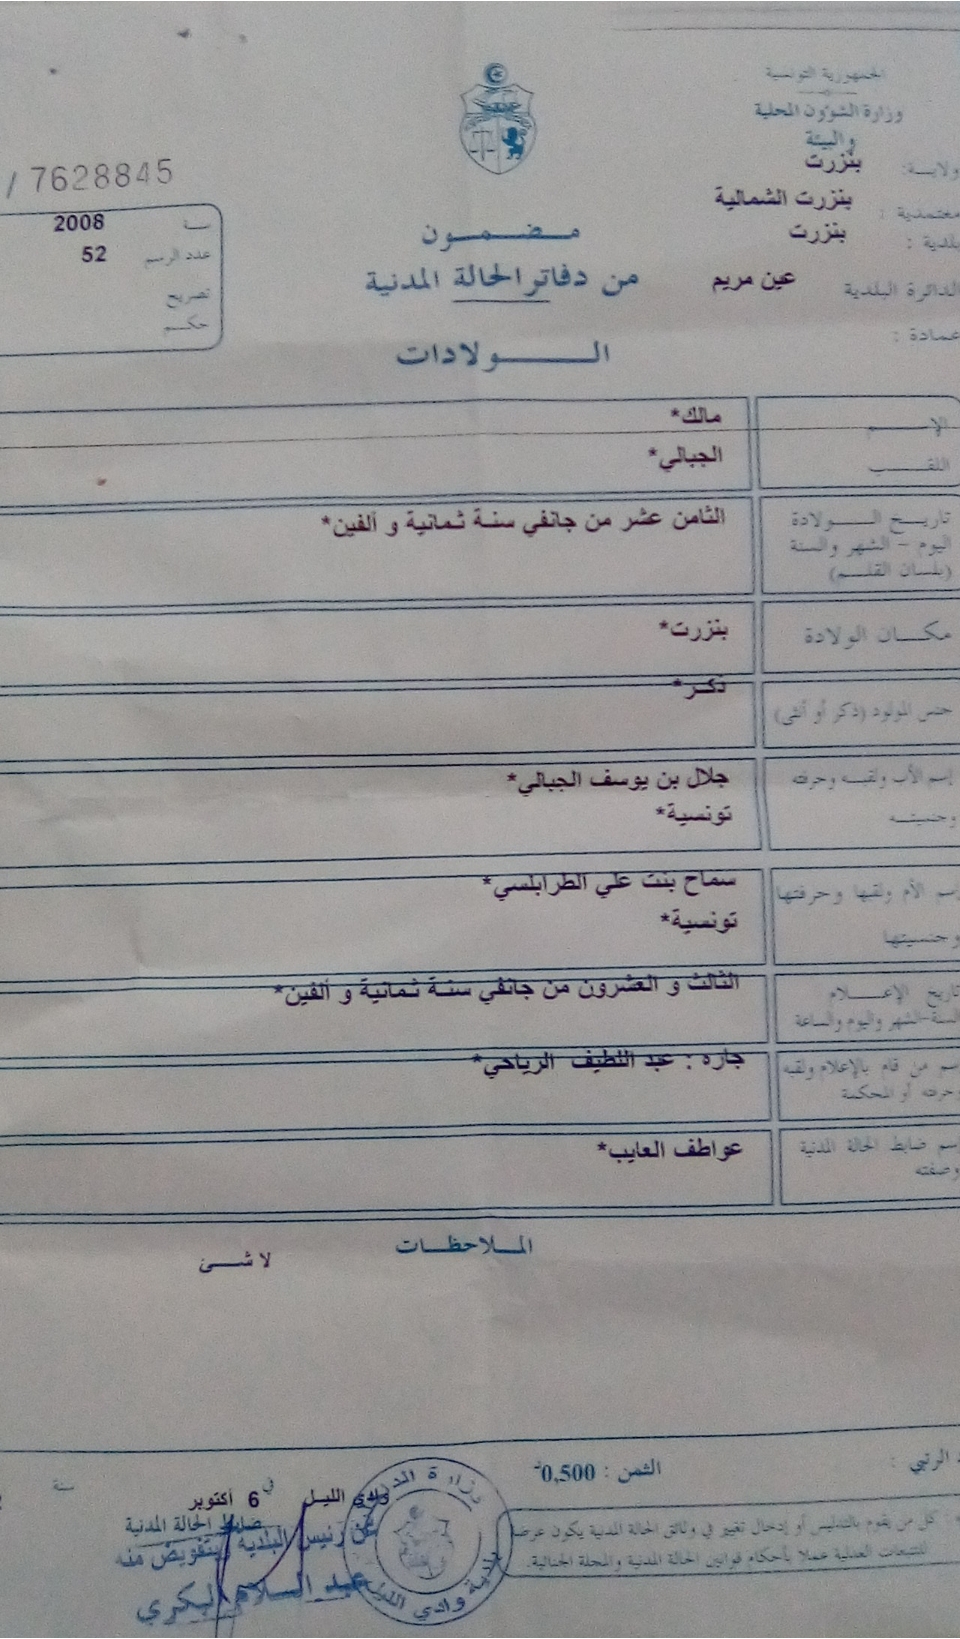 الجمهورية التونسية
وزارة الشؤون المحلية
والبيئة
ولايــة: بنزرت
معتمدية : بنزرت الشمالية
بلدية : بنزرت
الدائرة البلدية عين مريم
عمادة :
/ 7628845
سنــة 2008
عدد الرسم 52
تصريح
حكــم
مــضــمــون
من دفاتر الحالة المدنية
الــــولادات
الإســــم مالك*
اللقــــب الجبالي*
تاريــخ الــــولادة الثامن عشر من جانفي سنة ثمانية و ألفين*
اليوم – الشهر والسنة
(بلسان القلــم)
مكــان الولادة بنزرت*
جنس المولود (ذكر أو أنثى) ذكر*
إسم الأب ولقبــه وحرفته جلال بن يوسف الجبالي*
وجنسيتــه تونسية*
إسم الأم ولقبها وحرفتها سماح بنت علي الطرابلسي*
وجنسيتها تونسية*
تاريخ الإعــــلام الثالث و العشرون من جانفي سنة ثمانية و ألفين*
السنة-الشهر واليوم والساعة
إسم من قام بالإعلام ولقبه جاره : عبد اللطيف الرياحي*
وحرفته أو المحكمة
إسم ضابط الحالة المدنية عواطف العايب*
وصفته
المــلاحظــات
لا شــئ
الرتبي :
الثمن : 0,500د
وادي الليل في 6 أكتوبر سنة
ضابط الحالة المدنية
عن رئيس البلدية وبتفويض منه
عبد الســلام البكري
وزارة
بلدية وادي الليل
: كل من يقوم بالتدليس أو إدخال تغيير في وثائق الحالة المدنية يكون عرضة
للتتبعات العدلية عملا بأحكام قوانين الحالة المدنية والمجلة الجنائية.